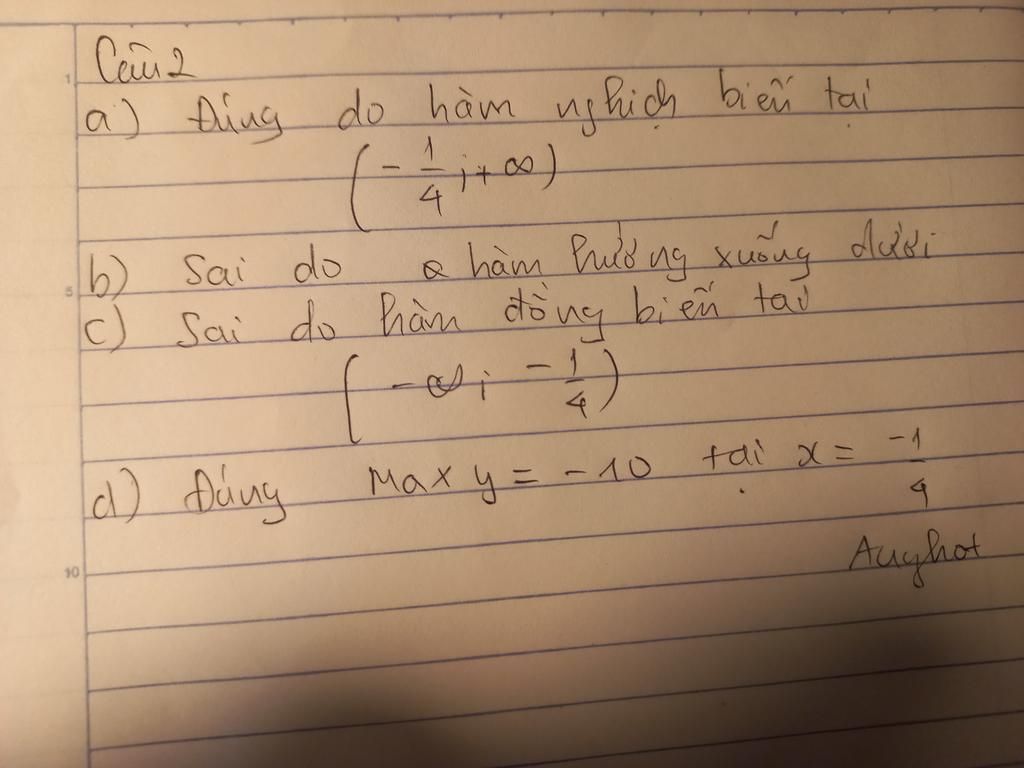 Câu 2
a) Đúng do hàm nghịch biến tại
(-1/4; +∞)
b) Sai do hàm hướng xuống dưới
c) Sai do hàm đồng biến tại
(-∞; -1/4)
d) Đúng Max y = -10 tại x = -1/4